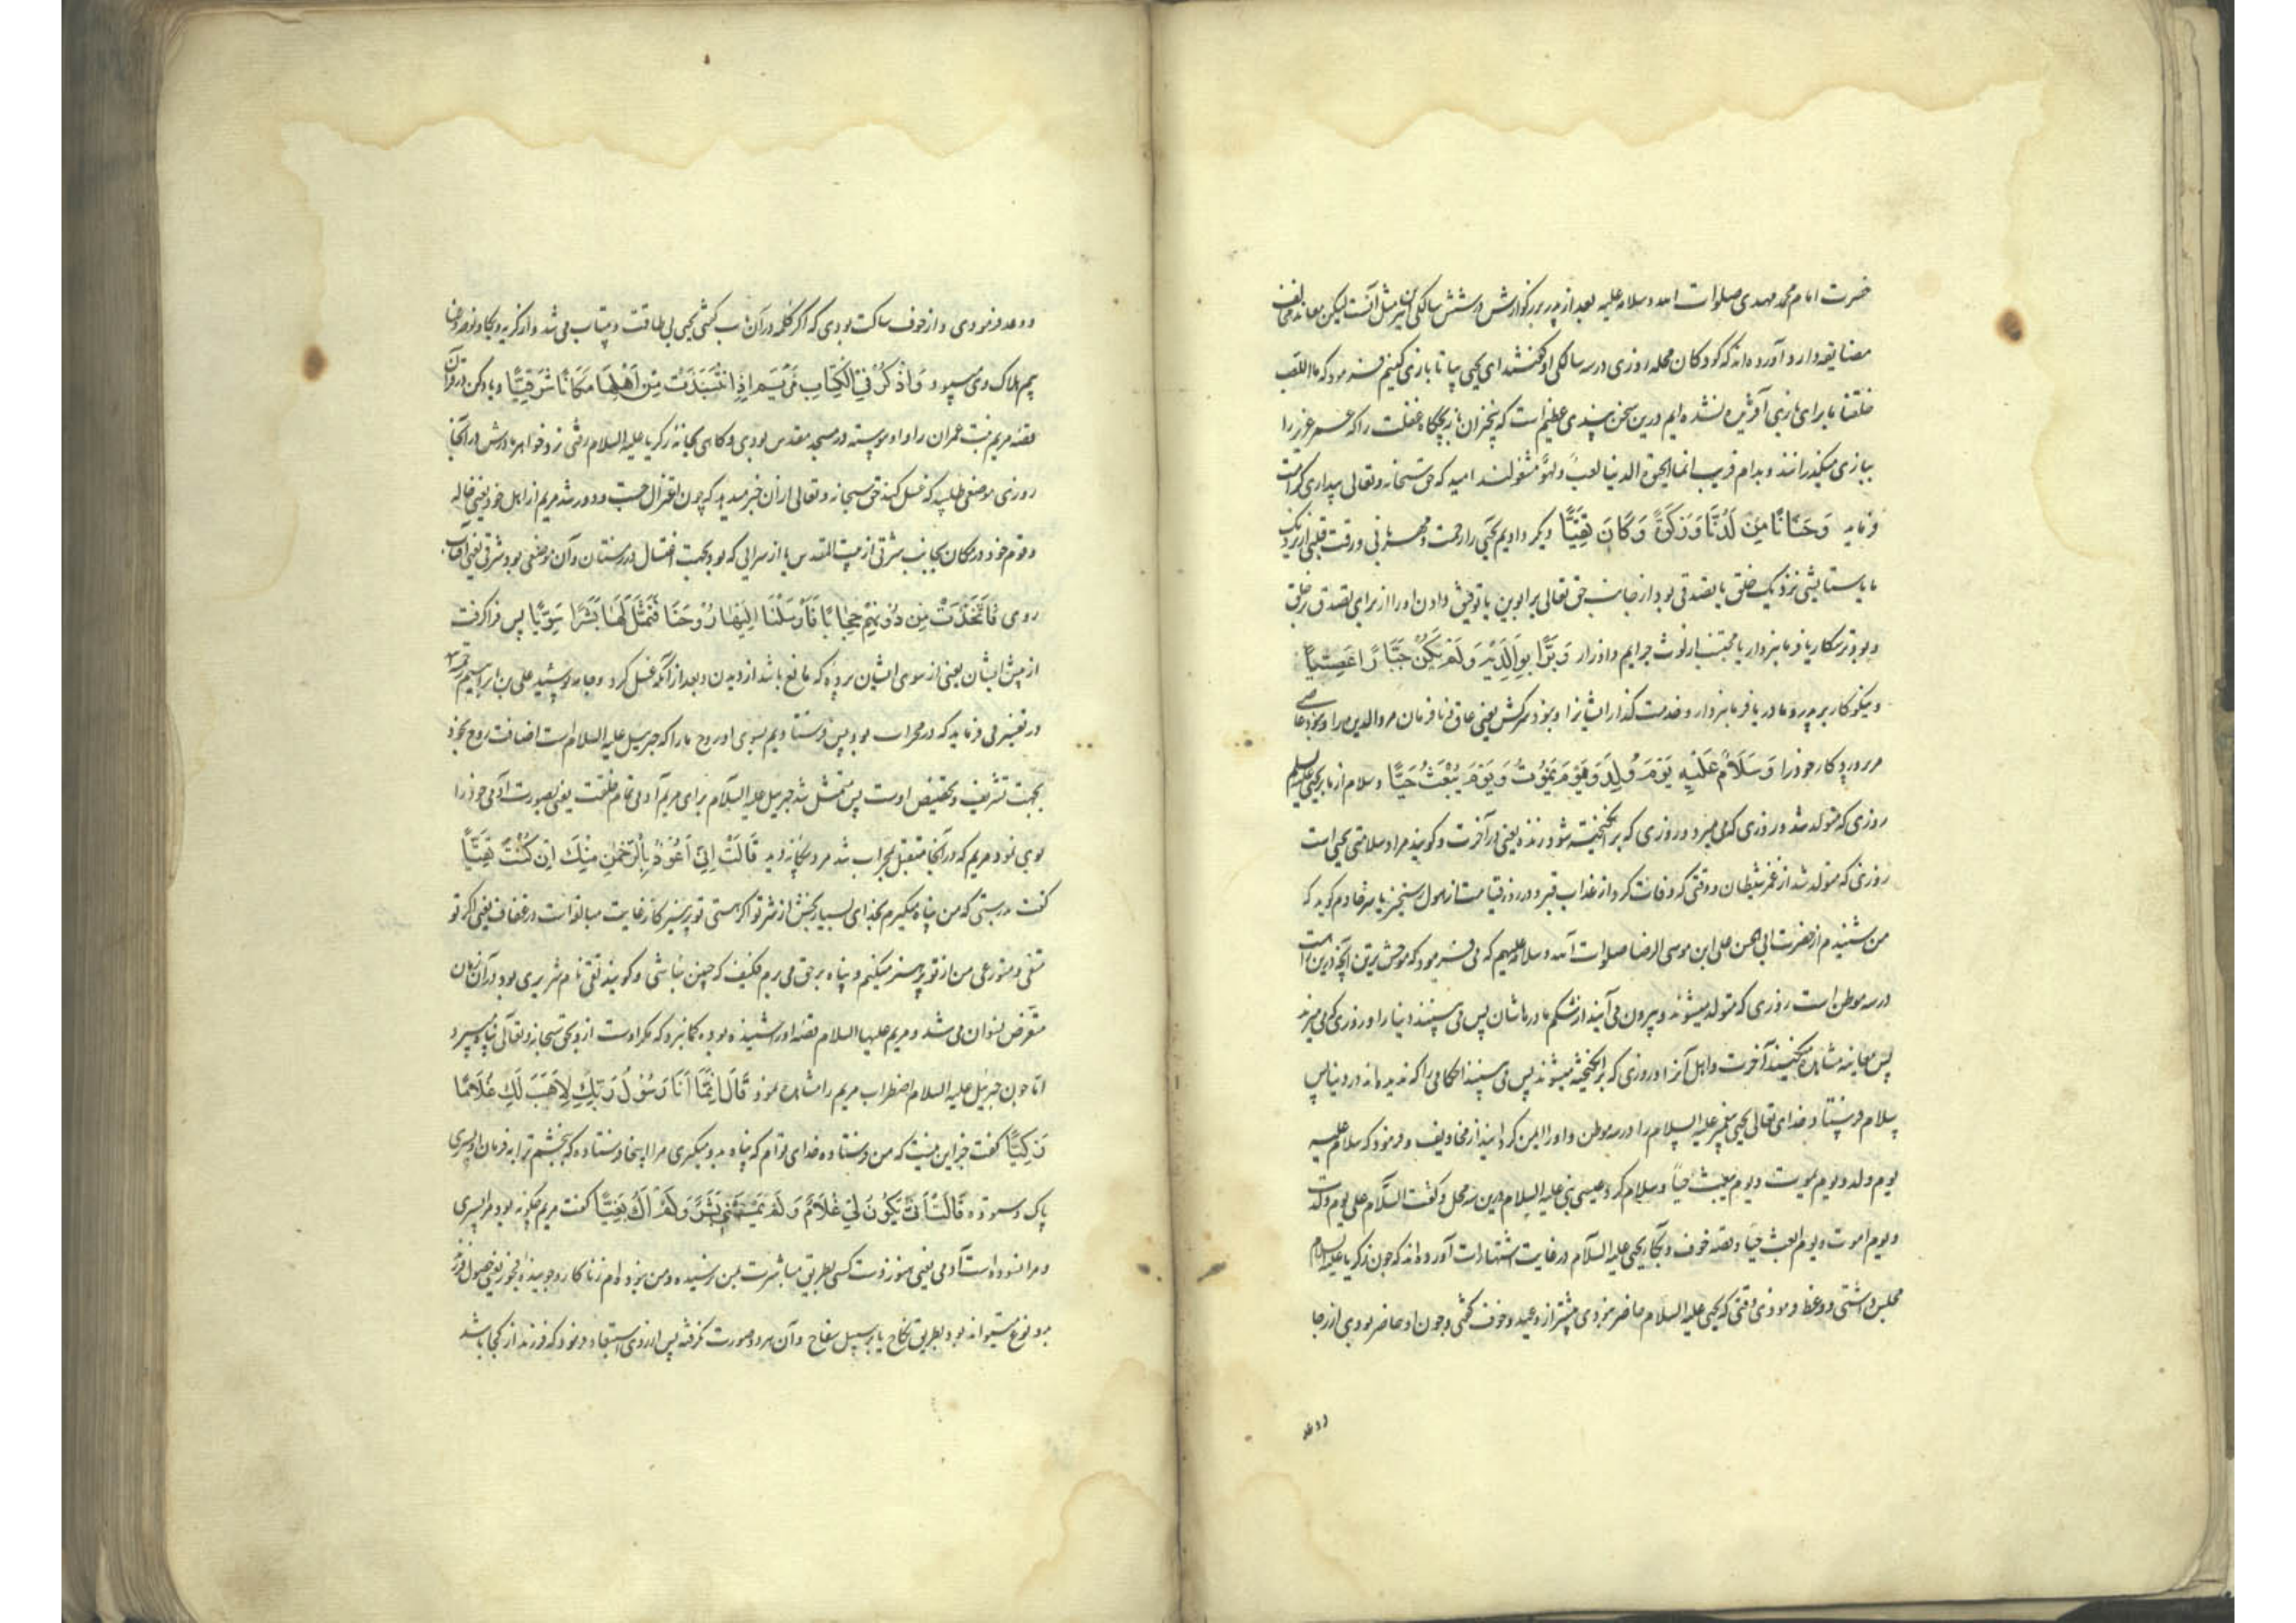 حضرت امام محمد مهدی صلوات الله و سلامه علیه بعد از پدر بزرگوارش در شش سالگی نیز مثل آنست لیکن معاند مخالف
مضایقه دارد و آورده اند که کودکان محله روزی در سه سالگی او گفتند ای یحیی بیا تا بازی کنیم فرمود که ما للعب
خلقنا ما برای بازی آفریده نشده ایم درین سخن پندی عظیم است که بیخبران بازیچگاه غفلت را که عمر عزیز را
ببازی میگذرانند و بدام فریب انما الحیوة الدنیا لعب و لهو مشغولند امید که حق سبحانه و تعالی بیداری کرامت
فرماید وَحَنَانًا مِنْ لَدُنَّا وَزَكٰوةً وَكَانَ تَقِيًّا و دیگر دادیم یحیی را رحمت و مهربانی و رقت قلبی از نزدیک
ما یا ستایشی نزدیک خلق یا تصدقی بود از جانب حق تعالی بر ابوین یا توفیق دادن او را از برای تصدق بر خلق
و بود ترسکار یا فرمانبردار یا مجتنب از لوث جرایم و اوزار وَبَرًّا بِوَالِدَيْهِ وَلَمْ يَكُنْ جَبَّارًا عَصِيًّا
و نیکوکار بر پدر و مادر یا فرمانبردار و خدمت گذار ایشانرا و نبود سرکش یعنی عاق و نافرمان مر والدین مر او نبود عاصی
مر پروردکار خود را وَسَلَامٌ عَلَيْهِ يَوْمَ وُلِدَ وَيَوْمَ يَمُوتُ وَيَوْمَ يُبْعَثُ حَيًّا و سلام از ما بر یحیی علیه السلم
روزی که متولد شد و روزی که می میرد و روزی که برانگیخته شود زنده یعنی در آخرت و گویند مراد سلامتی یحیی است
روزی که متولد شد از غمز شیطان و وقتی که وفات کرد از عذاب قبر و در روز قیامت از هول رستخیز یاسر خادم گوید که
من شنیدم از حضرت ابی الحسن علی ابن موسی الرضا صلوات الله و سلامه علیهم که می فرمود که موحش ترین آنچه درین امت
در سه موطن است روزی که متولد میشوند و بیرون می آیند از شکم مادرماشان پس می بینند دنیا را و روزی که می میرند
پس معاینه مشاهده میکنند آخرت و اهل آنرا و روزی که برانگیخته میشوند پس می بینند احکامی را که ندیده اند در دنیا پس
سلام فرستاد خدای تعالی یحیی پیغمبر علیه السلام را در سه موطن و او را ایمن گردانید از مخاویف و فرمود که سلام علیه
یوم ولد و یوم یموت و یوم یبعث حیا و سلام کرد عیسی نبی علیه السلام درین سه محل و گفت السلام علی یوم ولدت
و یوم اموت و یوم ابعث حیا و قصه خوف و بکاء یحیی علیه السلام در غایت اشتهار است آورده اند که چون زکریا علیه السلام
مجلس داشتی و وعظ فرمودی وقتی که یحیی علیه السلام حاضر نبودی بیشتر از وعید و خوف گفتی و چون او حاضر بودی از رجا
و وعد
و وعد فرمودی و از خوف ساکت بودی که اگر کلمه در آن باب گفتی یحیی بی طاقت و بیتاب می شد و از گریه و بکا و نوحه
بیم هلاک وی میبود وَاذْكُرْ فِي الْكِتَابِ مَرْيَمَ اِذِ انْتَبَذَتْ مِنْ اَهْلِهَا مَكَانًا شَرْقِيًّا و یاد کن در قرآن
قصه مریم بنت عمران را و او پیوسته در مسجد مقدس بودی و گاهی بخانه زکریا علیه السلام رفتی نزد خواهر مادرش در انجا
روزی موضعی طلبید که غسل کند حق سبحانه و تعالی از آن خبر میدهد که چون اعتزال جست و دور شد مریم از اهل خود یعنی خاله
و قوم خود در مکان بجانب شرقی از بیت المقدس یا از سرایی که بود بجهت اغتسال در زمستان و آن موضعی بود شرقی یعنی آفتاب
روی فَاتَّخَذَتْ مِنْ دُونِهِمْ حِجَابًا فَاَرْسَلْنَا اِلَيْهَا رُوحَنَا فَتَمَثَّلَ لَهَا بَشَرًا سَوِيًّا پس فرا گرفت
از پیش ایشان یعنی از سوی ایشان پرده که مانع باشد از دیدن و بعد از آنکه غسل کرد و جامه پوشید علی بن ابراهیم
در تفسیر می فرماید که در محراب بود پس فرستادیم بسوی او روح ما را که جبرئیل علیه السلام است اضافت روح بخود
بجهت تشریف و تخصیص اوست پس متمثل شد جبرئیل علیه السلام برای مریم آدمی تمام خلقت یعنی بصورت آدمی خود را
بوی نمود مریم که در آنجا مستقبل محراب شد مرد بیگانه دید قَالَتْ اِنِّي اَعُوذُ بِالرَّحْمٰنِ مِنْكَ اِنْ كُنْتَ تَقِيًّا
گفت بدرستی که من پناه میگیرم بخدای بسیار بخشش از شر تو اگر هستی تو پرهیزکار غایت مبالغه است در عفاف یعنی اگر تو
متقی و متورعی من از تو پرهیز میکنم و پناه بر حق می برم فکیف که چنین نباشی و گویند تقی نام شریری بود در آن زمان
متعرض نسوان می شد و مریم علیها السلام قصه او را شنیده بوده گمان برد که مگر اوست از وی بحق سبحانه و تعالی پناه میبرد
اما چون جبرئیل علیه السلام اضطراب مریم را مشاهده نمود قَالَ اِنَّمَا اَنَا رَسُولُ رَبِّكِ لِاَهَبَ لَكِ غُلَامًا
زَكِيًّا گفت جز این نیست که من فرستاده خدای توام که پناه بدو میگیری مرا اینجا فرستاده که ببخشم ترا به فرمان او پسری
پاک و ستوده قَالَتْ اَنّٰى يَكُونُ لِي غُلَامٌ وَلَمْ يَمْسَسْنِي بَشَرٌ وَلَمْ اَكُ بَغِيًّا گفت مریم چگونه بود مرا پسری
و مرا نسوده است آدمی یعنی هنوز دست کسی بطریق مباشرت بمن نرسیده و من نبوده ام زناکار و جوینده فجور یعنی حصول فرزند
بدو نوع میتواند بود بطریق نکاح یا بر سبیل سفاح و آن هر دو صورت نگرفته پس از روی استبعاد فرمود که فرزند از کجا باشد